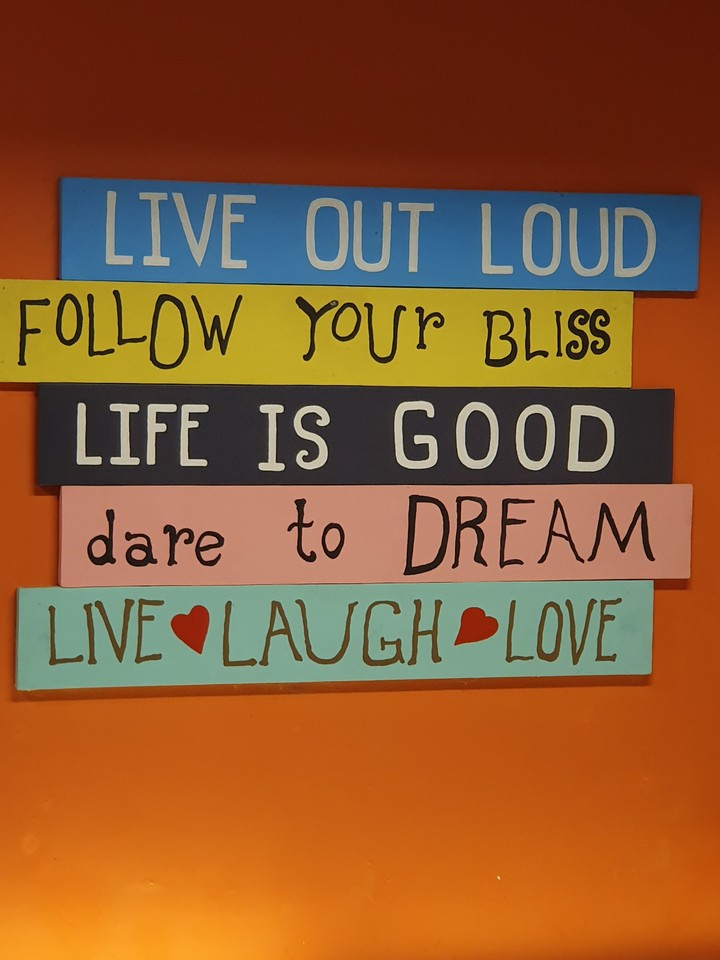 LIVE OUT LOUD
FOLLOW YOUr BLISS
LIFE IS GOOD
dare to DREAM
LIVE♥LAUGH♥LOVE